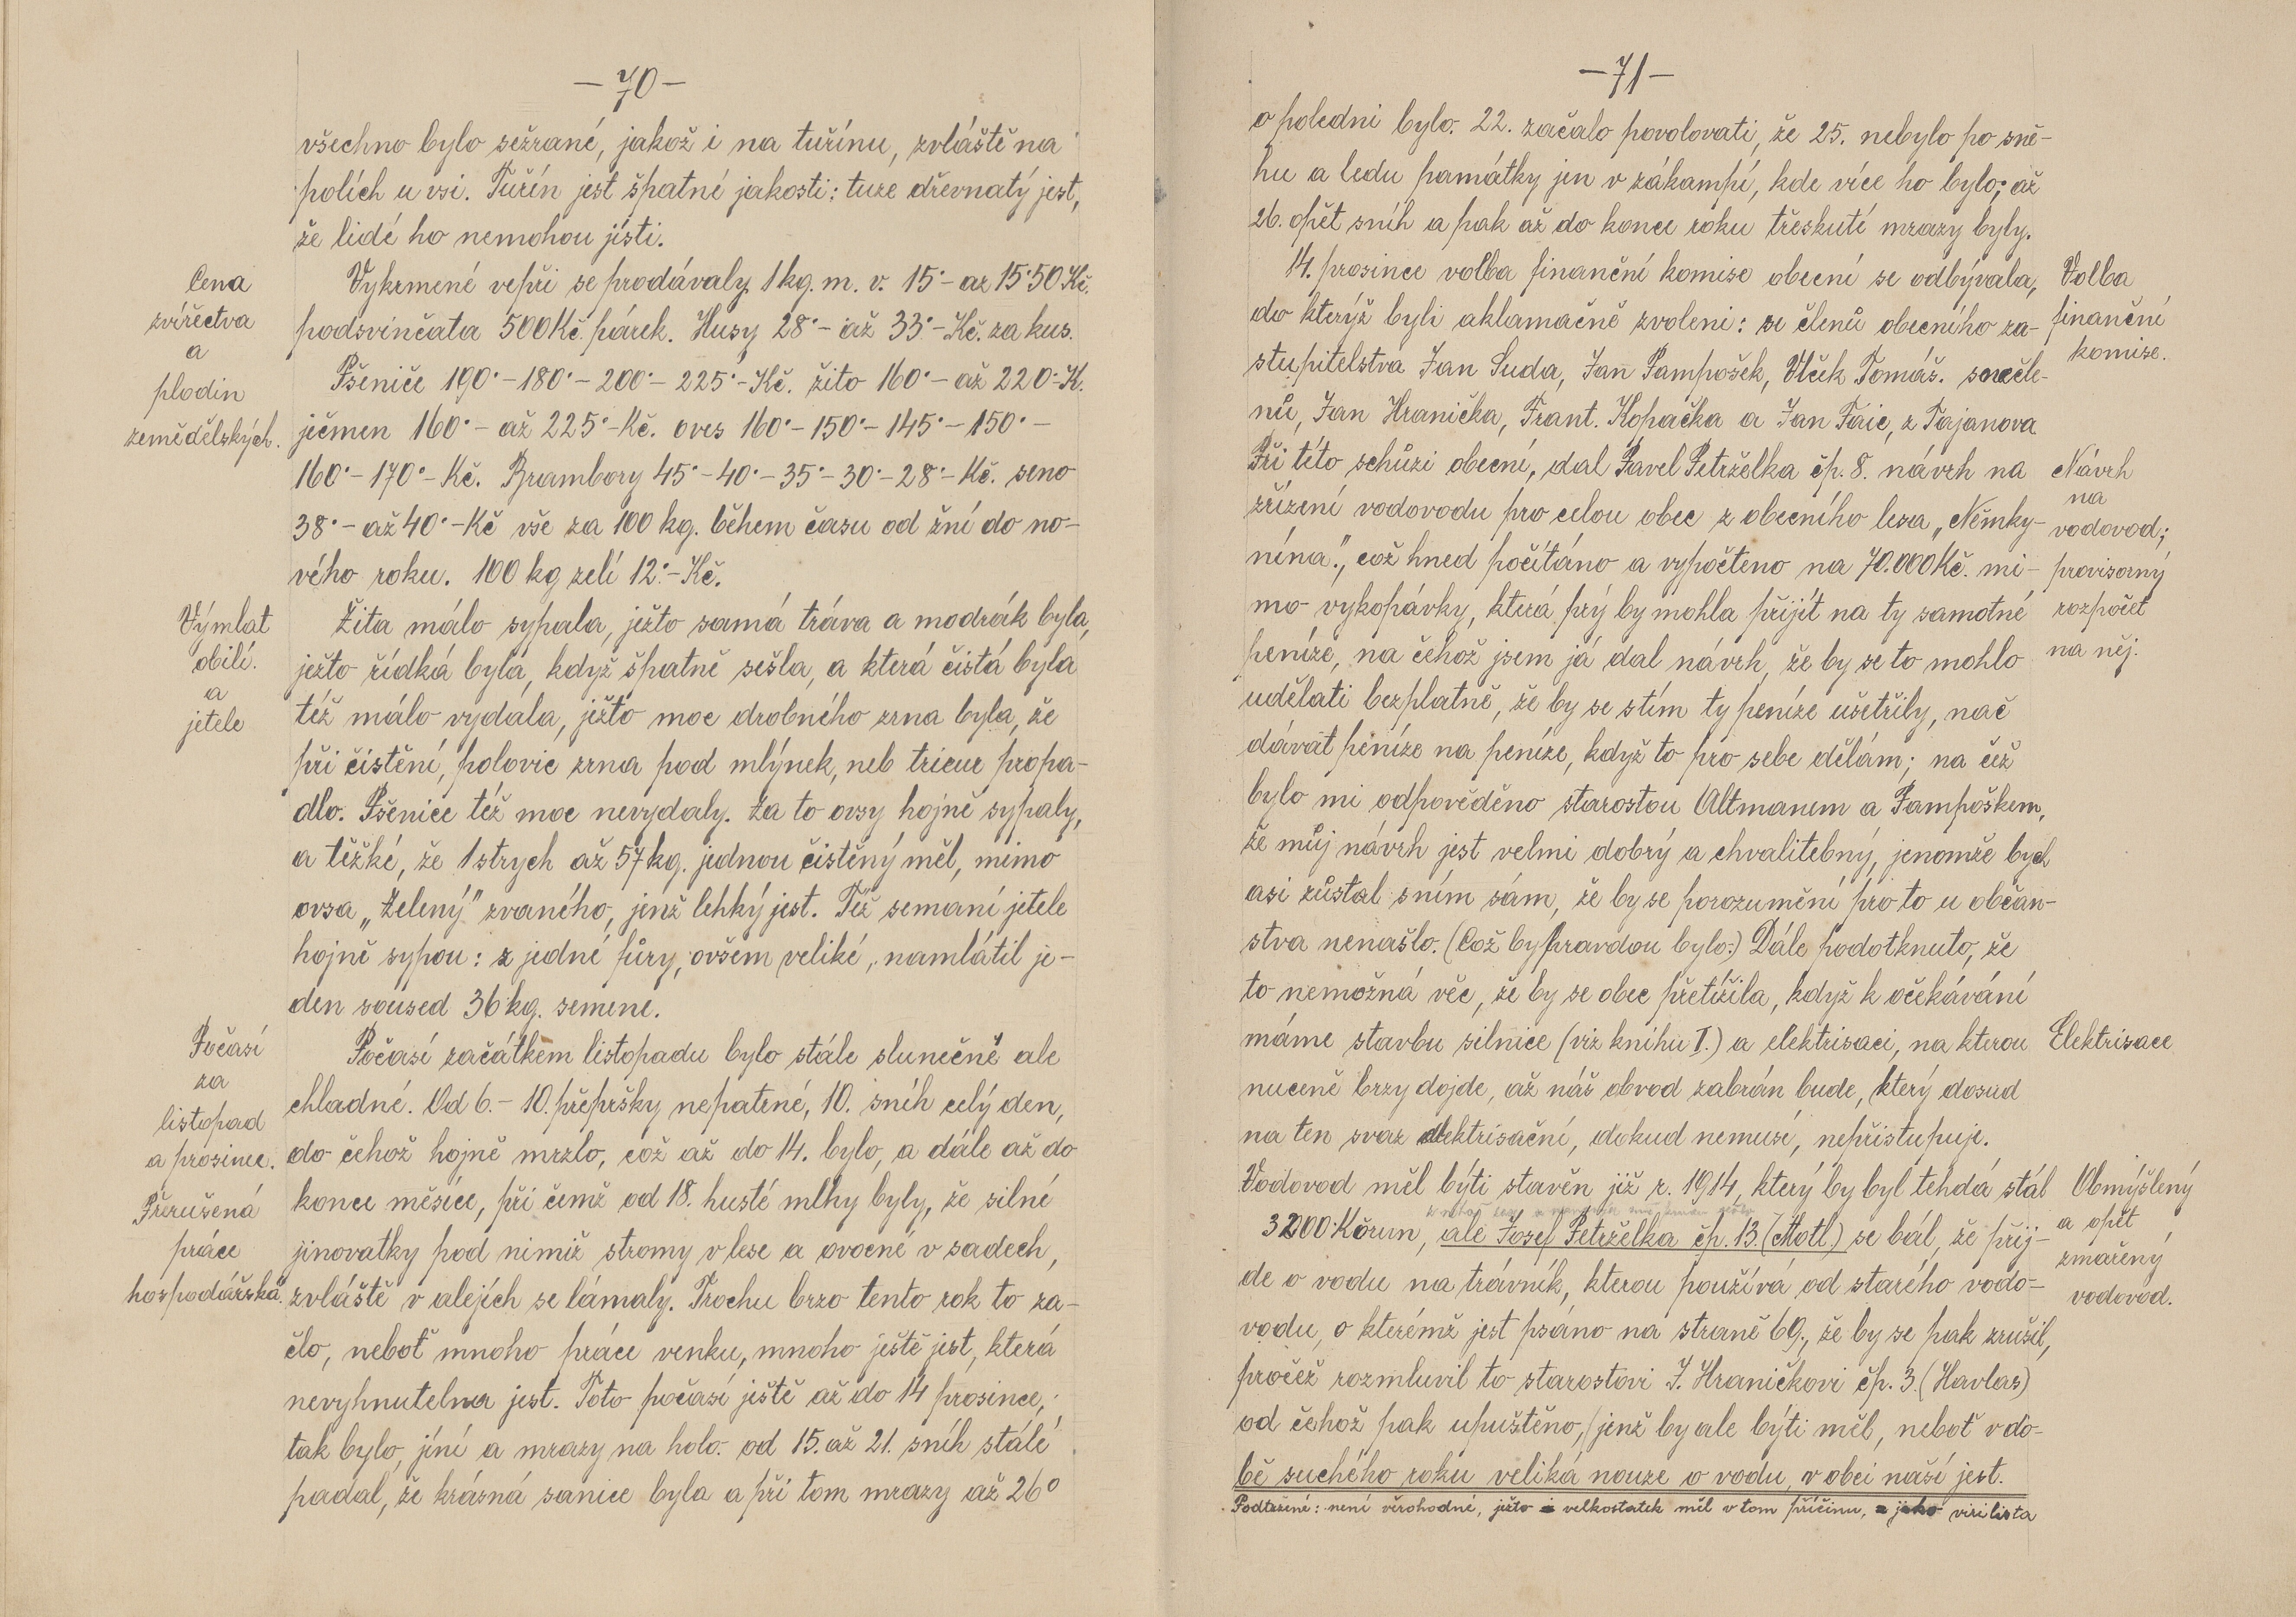 — 70 —
všechno bylo sežrané, jakož i na tuřínu, zvláště na
polích u vsi. Tuřín jest špatné jakosti: tuze dřevnatý jest,
že lidé ho nemohou jísti.
Cena
zvířectva
a
plodin
zemědělských.
Vykrmené vepři se prodávaly 1 kg. m. v. 15·– až 15·50 Kč.
podsvinčata 500 Kč. párek. Husy 28·– až 33·– Kč. za kus.
Pšenice 190·– 180·– 200·– 225·– Kč. žito 160·– až 220·– K.
ječmen 160·– až 225·– Kč. oves 160·– 150·– 145·– 150·–
160·– 170·– Kč. Brambory 45·– 40·– 35·– 30·– 28·– Kč. seno
38·– až 40·– Kč vše za 100 kg. během času od žní do no-
vého roku. 100 kg zelí 12·– Kč.
Výmlat
obilí.
a
jetele
Žita málo sypala, ježto samá tráva a modrák byla,
ježto řídká byla, když špatně sešla, a která čistá byla
též málo vydala, ježto moc drobného zrna byla, že
při čistění, polovic zrna pod mlýnek, neb trieur propa-
dlo. Pšenice též moc nevydaly. Za to ovsy hojně sypaly,
a těžké, že 1 strych až 57 kg. jednou čistěný měl, mimo
ovsa „Zelený" zvaného, jenž lehký jest. Též semaní jetele
hojně sypou: z jedné fůry, ovšem veliké, namlátil je-
den soused 36 kg. semene.
Počasí
za
listopad
a prosinec.
Přerušená
práce
hospodářská.
Počasí začátkem listopadu bylo stále slunečné ale
chladné. Od 6. – 10. přepršky nepatrné, 10. sníh celý den,
do čehož hojně mrzlo, což až do 14. bylo, a dále až do
konce měsíce, při čemž od 18. husté mlhy byly, že silné
jinovatky pod nimiž stromy v lese a ovocné v sadech,
zvláště v alejích se lámaly. Trochu brzo tento rok to za-
člo, neboť mnoho práce venku, mnoho ještě jest, která
nevyhnutelna jest. Toto počasí ještě až do 14 prosince,
tak bylo, jíní a mrazy na holo. od 15. až 21. sníh stále
padal, že krásná sanice byla a při tom mrazy až 26°
— 71 —
o poledni bylo. 22. začalo povolovati, že 25. nebylo po sně-
hu a ledu památky jen v zákampí, kde více ho bylo; až
26. opět sníh a pak až do konce roku třeskuté mrazy byly.
14. prosince volba finanční komise obecní se odbývala,
do kterýž byli aklamačně zvoleni: se členů obecního za-
stupitelstva Jan Suda, Jan Pampošek, Vlček Tomáš. s nečle-
nů, Jan Hranička, Frant. Kopačka a Jan Faic, z Tajanova
Volba
finanční
komise.
Při této schůzi obecní, dal Pavel Petrželka čp. 8. návrh na
zřízení vodovodu pro celou obec z obecního lesa „Němky-
nína.", což hned počítáno a vypočteno na 70.000 Kč. mi-
mo vykopávky, která prý by mohla přijít na ty samotné
peníze, na čehož jsem já dal návrh, že by se to mohlo
udělati bezplatně, že by se stím ty peníze ušetřily, nač
dávat peníze na peníze, když to pro sebe dělám; na čež
bylo mi odpověděno starostou Altmanem a Pampoškem,
že můj návrh jest velmi dobrý a chvalitebný, jenomže bych
asi zůstal sním sám, že by se porozumění pro to u občan-
stva nenašlo. (Což by pravdou bylo.) Dále podotknuto, že
to nemožná věc, že by se obec přetížila, když k očekávání
máme stavbu silnice (viz knihu I.) a elektrisaci, na kterou
nuceně brzy dojde, až náš obvod zabrán bude, který dosud
na ten svaz elektrisační, dokud nemusí, nepřistupuje.
Návrh
na
vodovod;
provisorný
rozpočet
na něj.
Elektrisace
Vodovod měl býti stavěn již r. 1914, který by byl tehdá stál
32000 Korun, ale Josef Petrželka čp. 13. (Motl.) se bál, že přij-
de o vodu na trávník, kterou používá od starého vodo-
vodu, o kterémž jest psáno na straně 69., že by se pak zrušil,
pročež rozmluvil to starostovi J. Hraničkovi čp. 3. (Havlas)
od čehož pak upuštěno, (jenž by ale býti měl, neboť v do-
bě suchého roku veliká nouze o vodu, v obci naší jest.
Obmýšlený
a opět
zmařený
vodovod.
Podtržené: není věrohodné, ježto velkostatek měl v tom příčinu, jako virilista